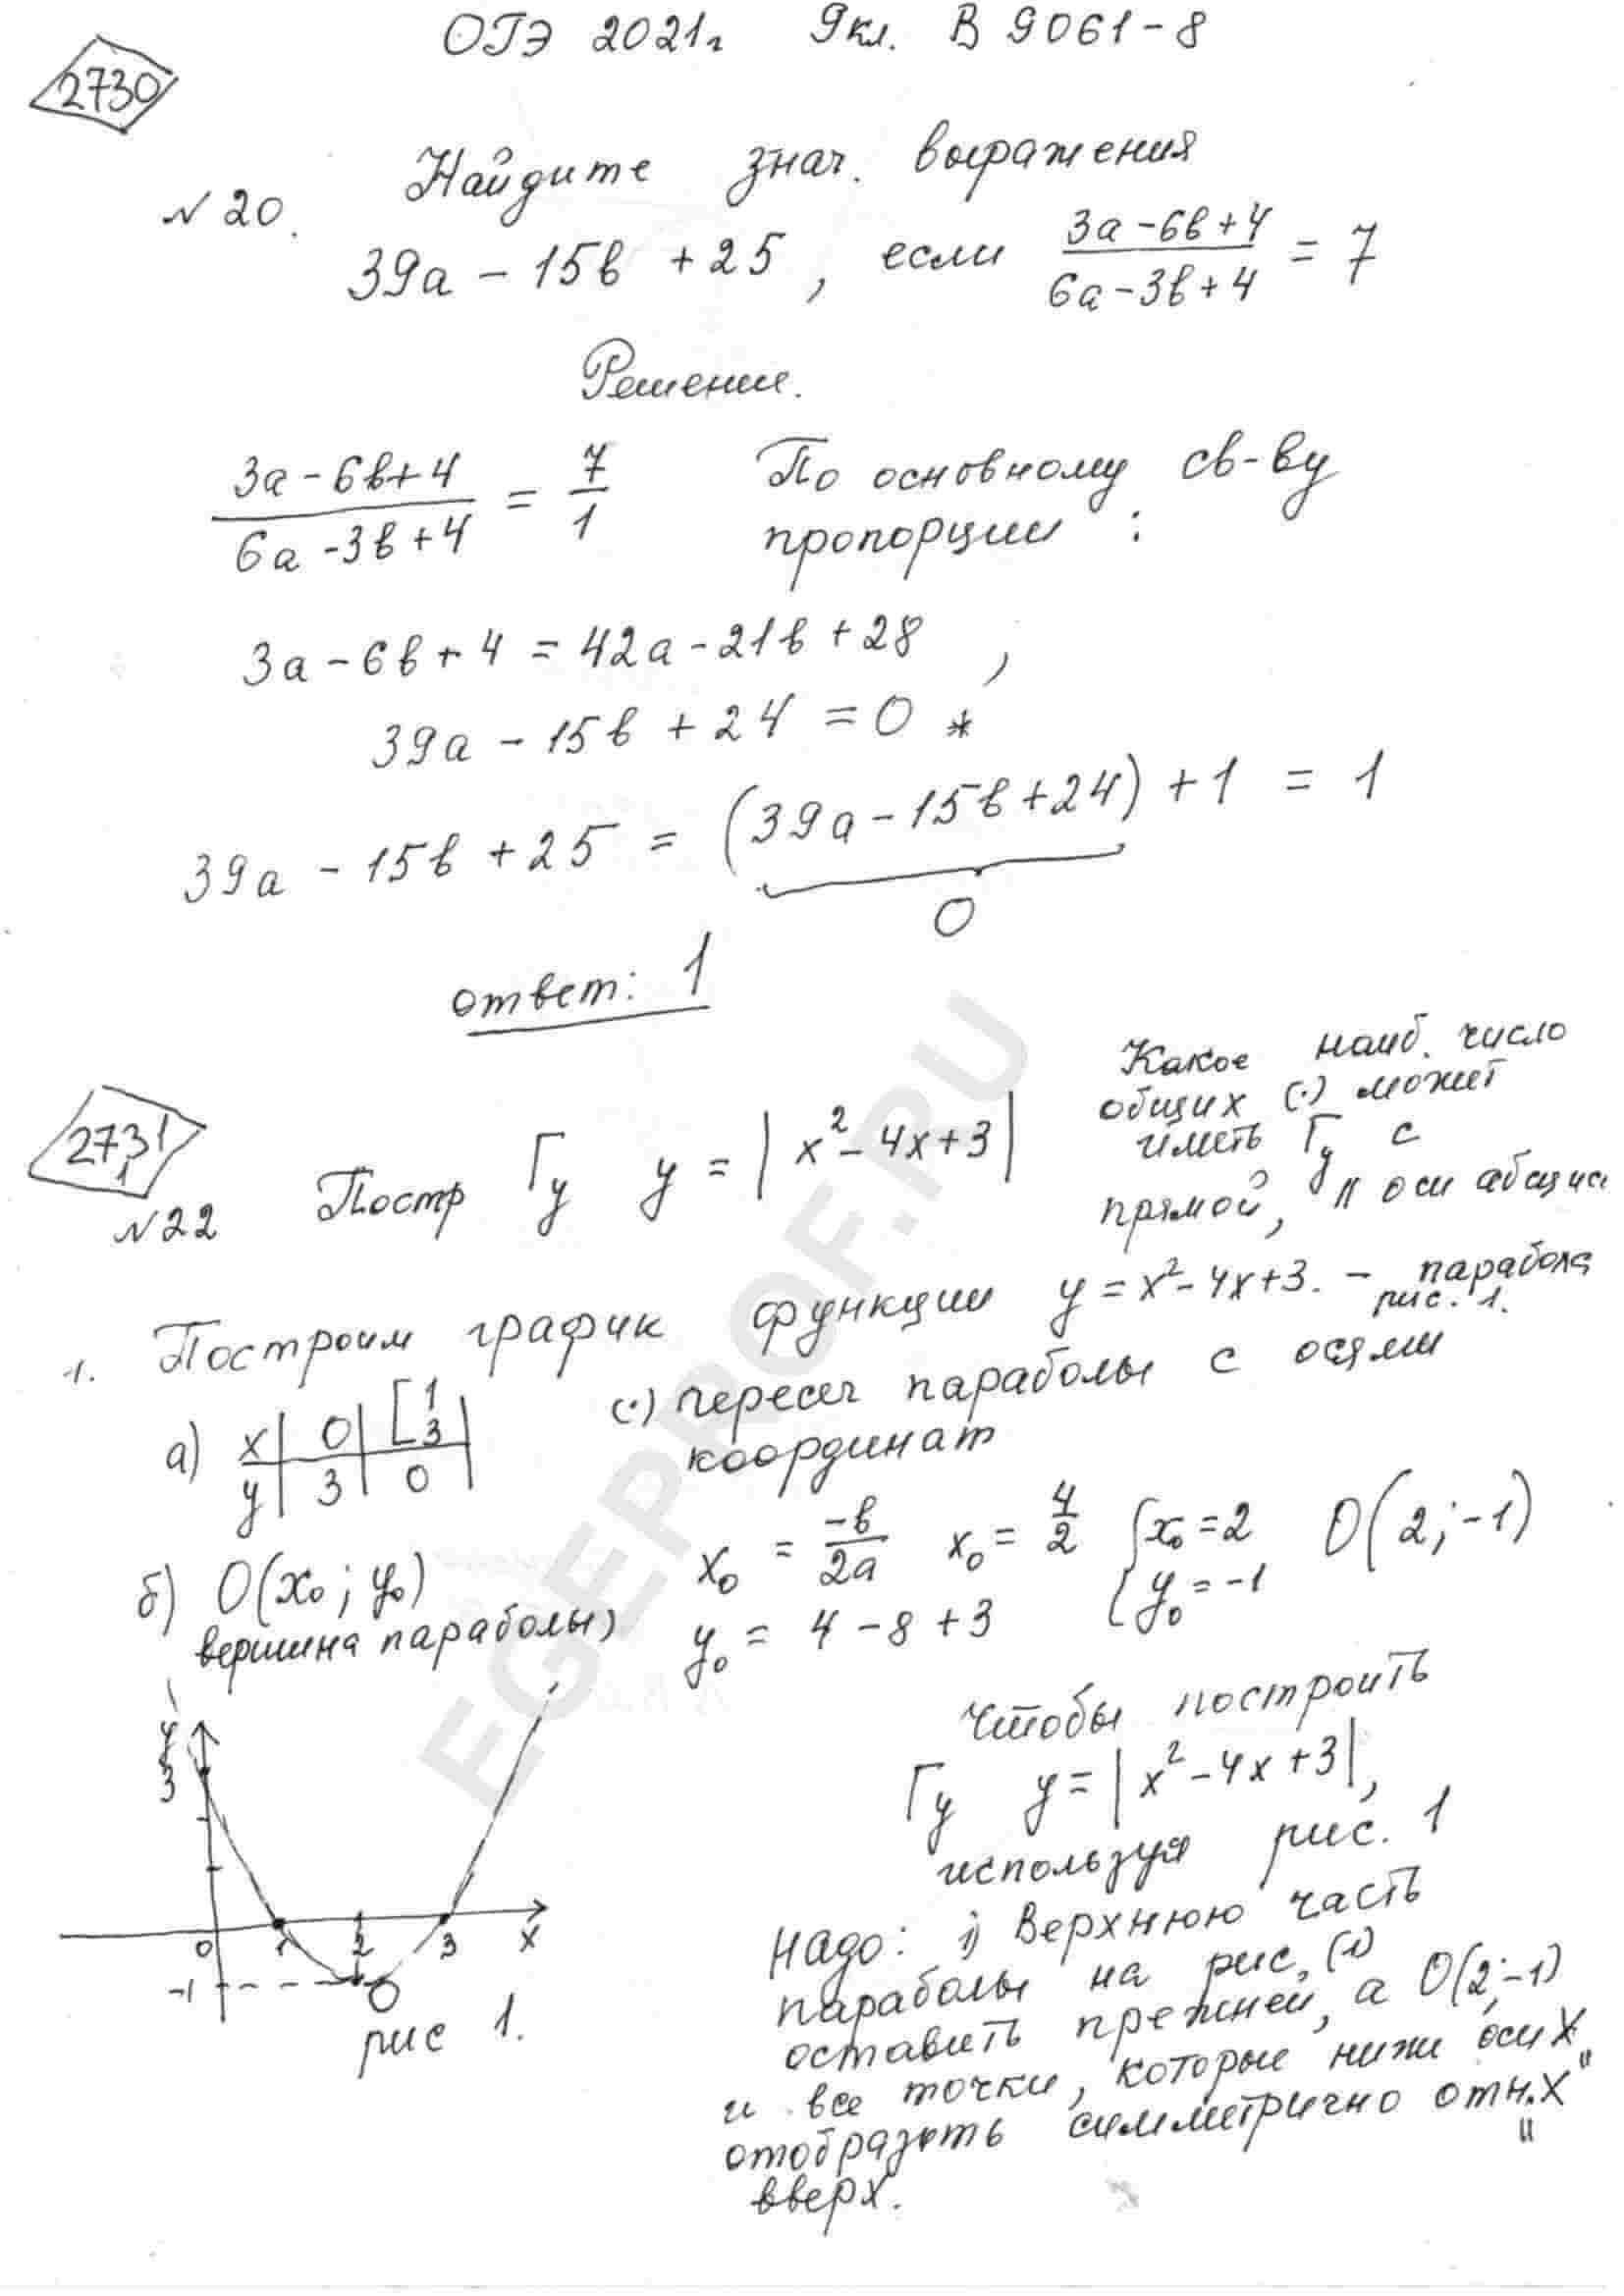 ОГЭ 2021г 9кл. В 9061-8
2730
Найдите знач. выражения
№20.
39а - 15в + 25, если (3а-6в+4)/(6а-3в+4) = 7
Решение.
(3а-6в+4)/(6а-3в+4) = 7/1 По основному св-ву
пропорции:
3а-6в+4 = 42а-21в+28,
39а - 15в + 24 = 0 *
39а - 15в + 25 = (39а-15в+24) + 1 = 1
0
ответ: 1
2731
1
№22
Постр Гу y = |x²-4x+3|
Какое наиб. число
общих (·) может
иметь Гу с
прямой, || оси абсцисс
1. Построим график функции y = x²-4x+3. - парабола
рис. 1.
а) x | 0 | [1 3 |
y | 3 | 0 |
(·) пересеч параболы с осями
координат
б) O(x₀; y₀)
вершина параболы)
x₀ = -в/2а x₀ = 4/2 { x₀ = 2 O(2;-1)
y₀ = 4-8+3 y₀ = -1
y
3
0 1 2 3 x
-1
O
рис 1.
Чтобы построить
Гу y = |x²-4x+3|,
используя рис. 1
Надо: 1) Верхнюю часть
параболы на рис. (1)
оставить прежней, а O(2;-1)
и все точки, которые ниже оси X
отобразить симметрично отн. "X"
вверх.
EGEPROF.RU